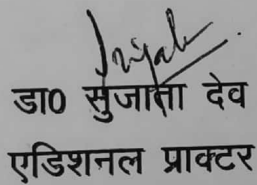 डा0 सुजाता देव
एडिशनल प्राक्टर